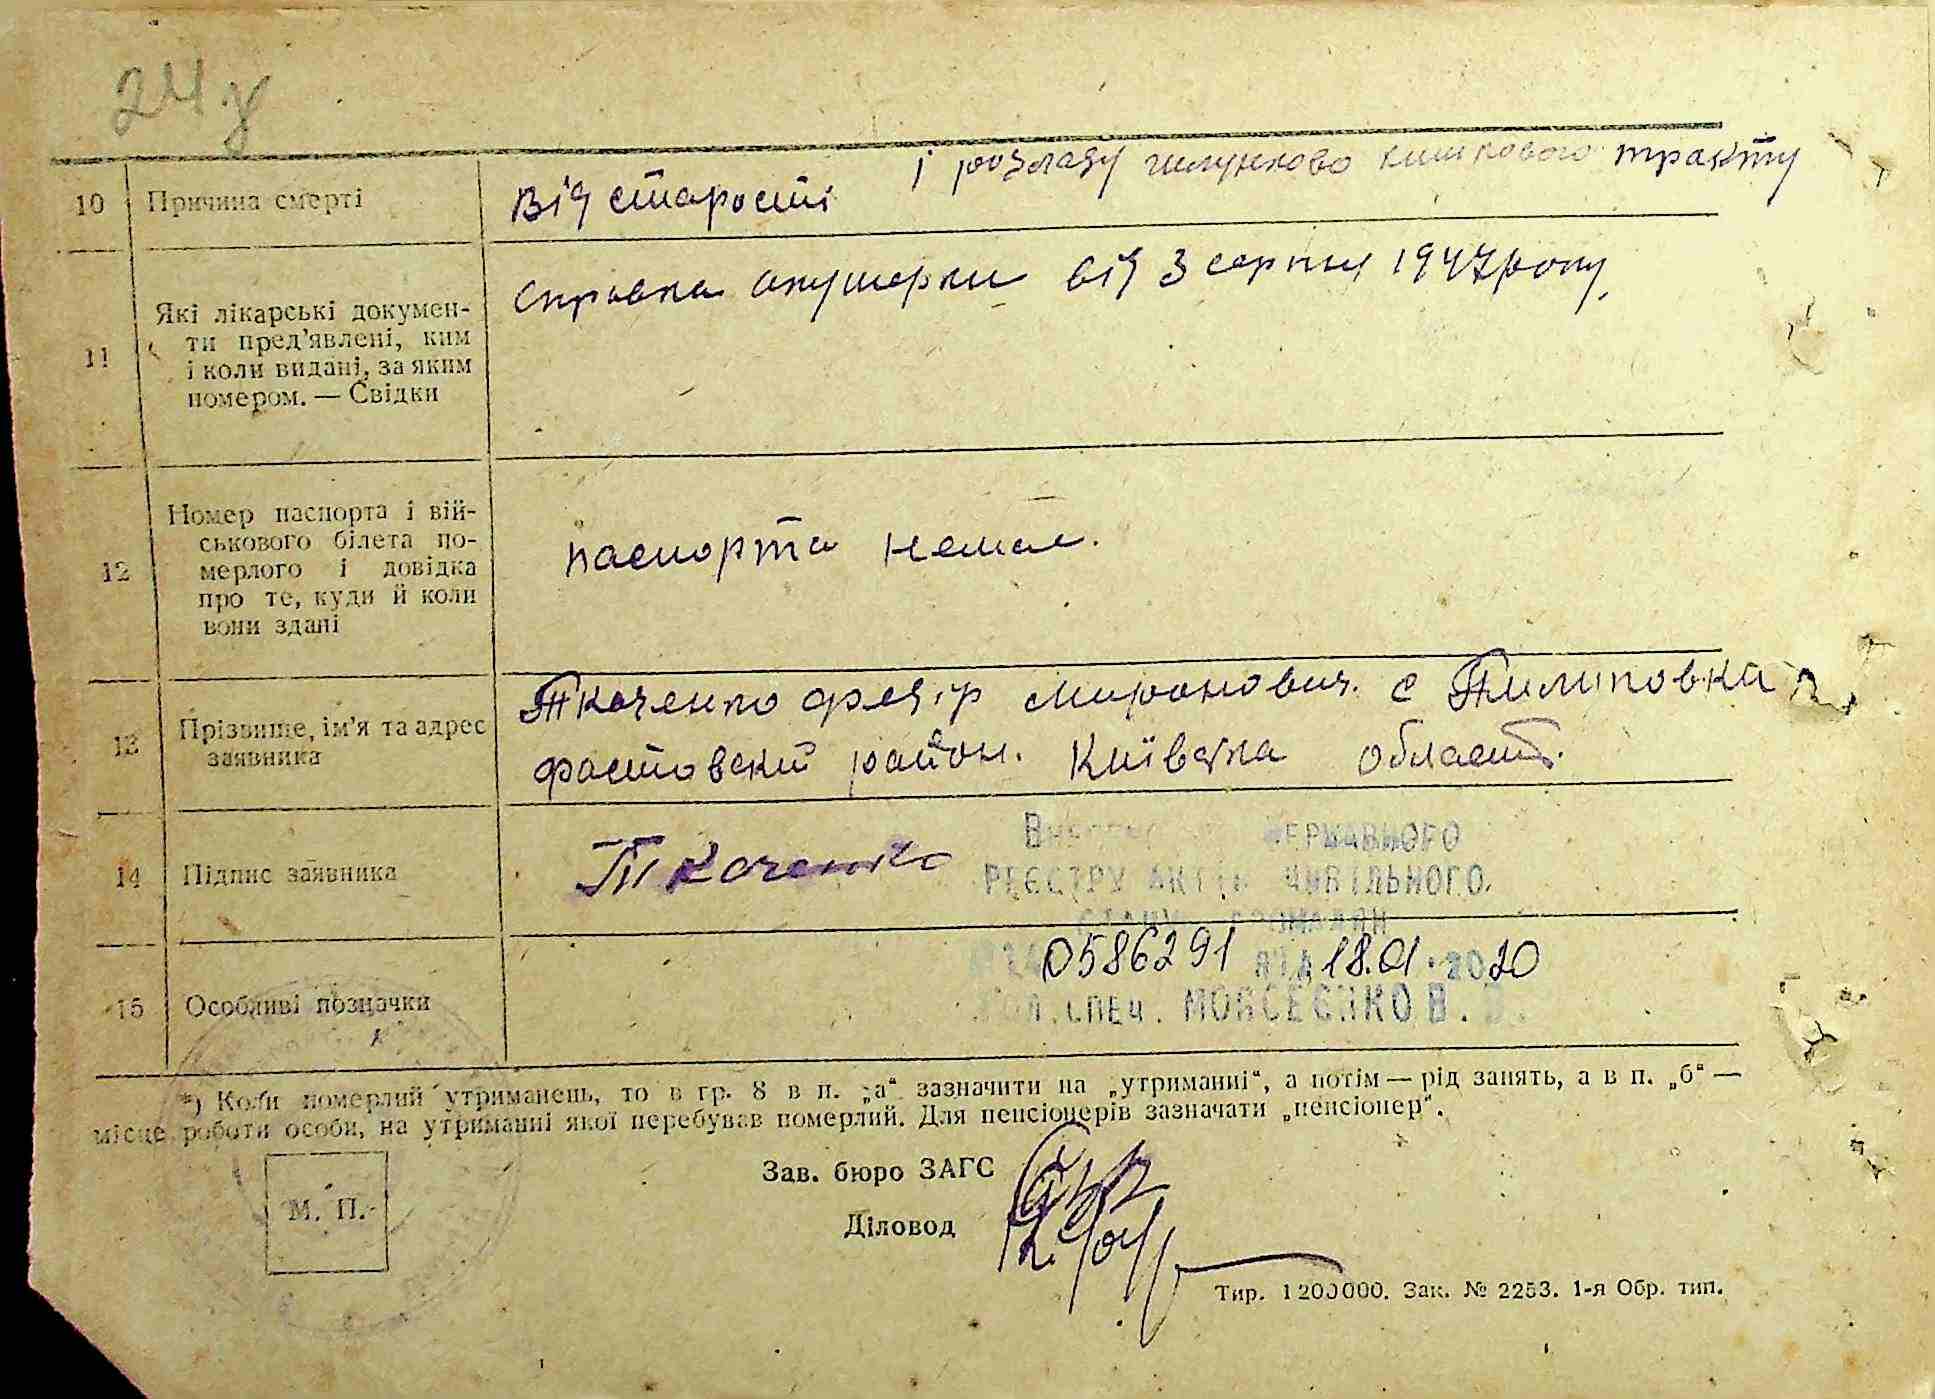 24
10 Причина смерті
Від старості і розладу шлунково кишкового тракту
11 Які лікарські докумен-
ти пред'явлені, ким
і коли видані, за яким
номером. — Свідки
Справка акушерки від 3 серпня 1947 року.
12 Номер паспорта і вій-
ськового білета по-
мерлого і довідка
про те, куди й коли
вони здані
паспорта немає.
13 Прізвище, ім'я та адрес
заявника
Ткаченко Федір Миронович. с Пилиповка
Фастовский район. Київська область.
14 Підпис заявника
Ткаченко
ДЕРЖАВНОГО
РЕЄСТРУ АКТІВ ЦИВІЛЬНОГО
СТАНУ ГРОМАДЯН
0586291 від 18.01.2020
СПЕЦ. МОЙСЕЄНКО В.
15 Особливі позначки
*) Коли померлий утриманець, то в гр. 8 в п. „а“ зазначити на „утриманні“, а потім — рід занять, а в п. „б“ —
місце роботи особи, на утриманні якої перебував померлий. Для пенсіонерів зазначати „пенсіонер“.
Зав. бюро ЗАГС
М. П.
Діловод
Тир. 1200000. Зак. № 2253. 1-я Обр. тип.